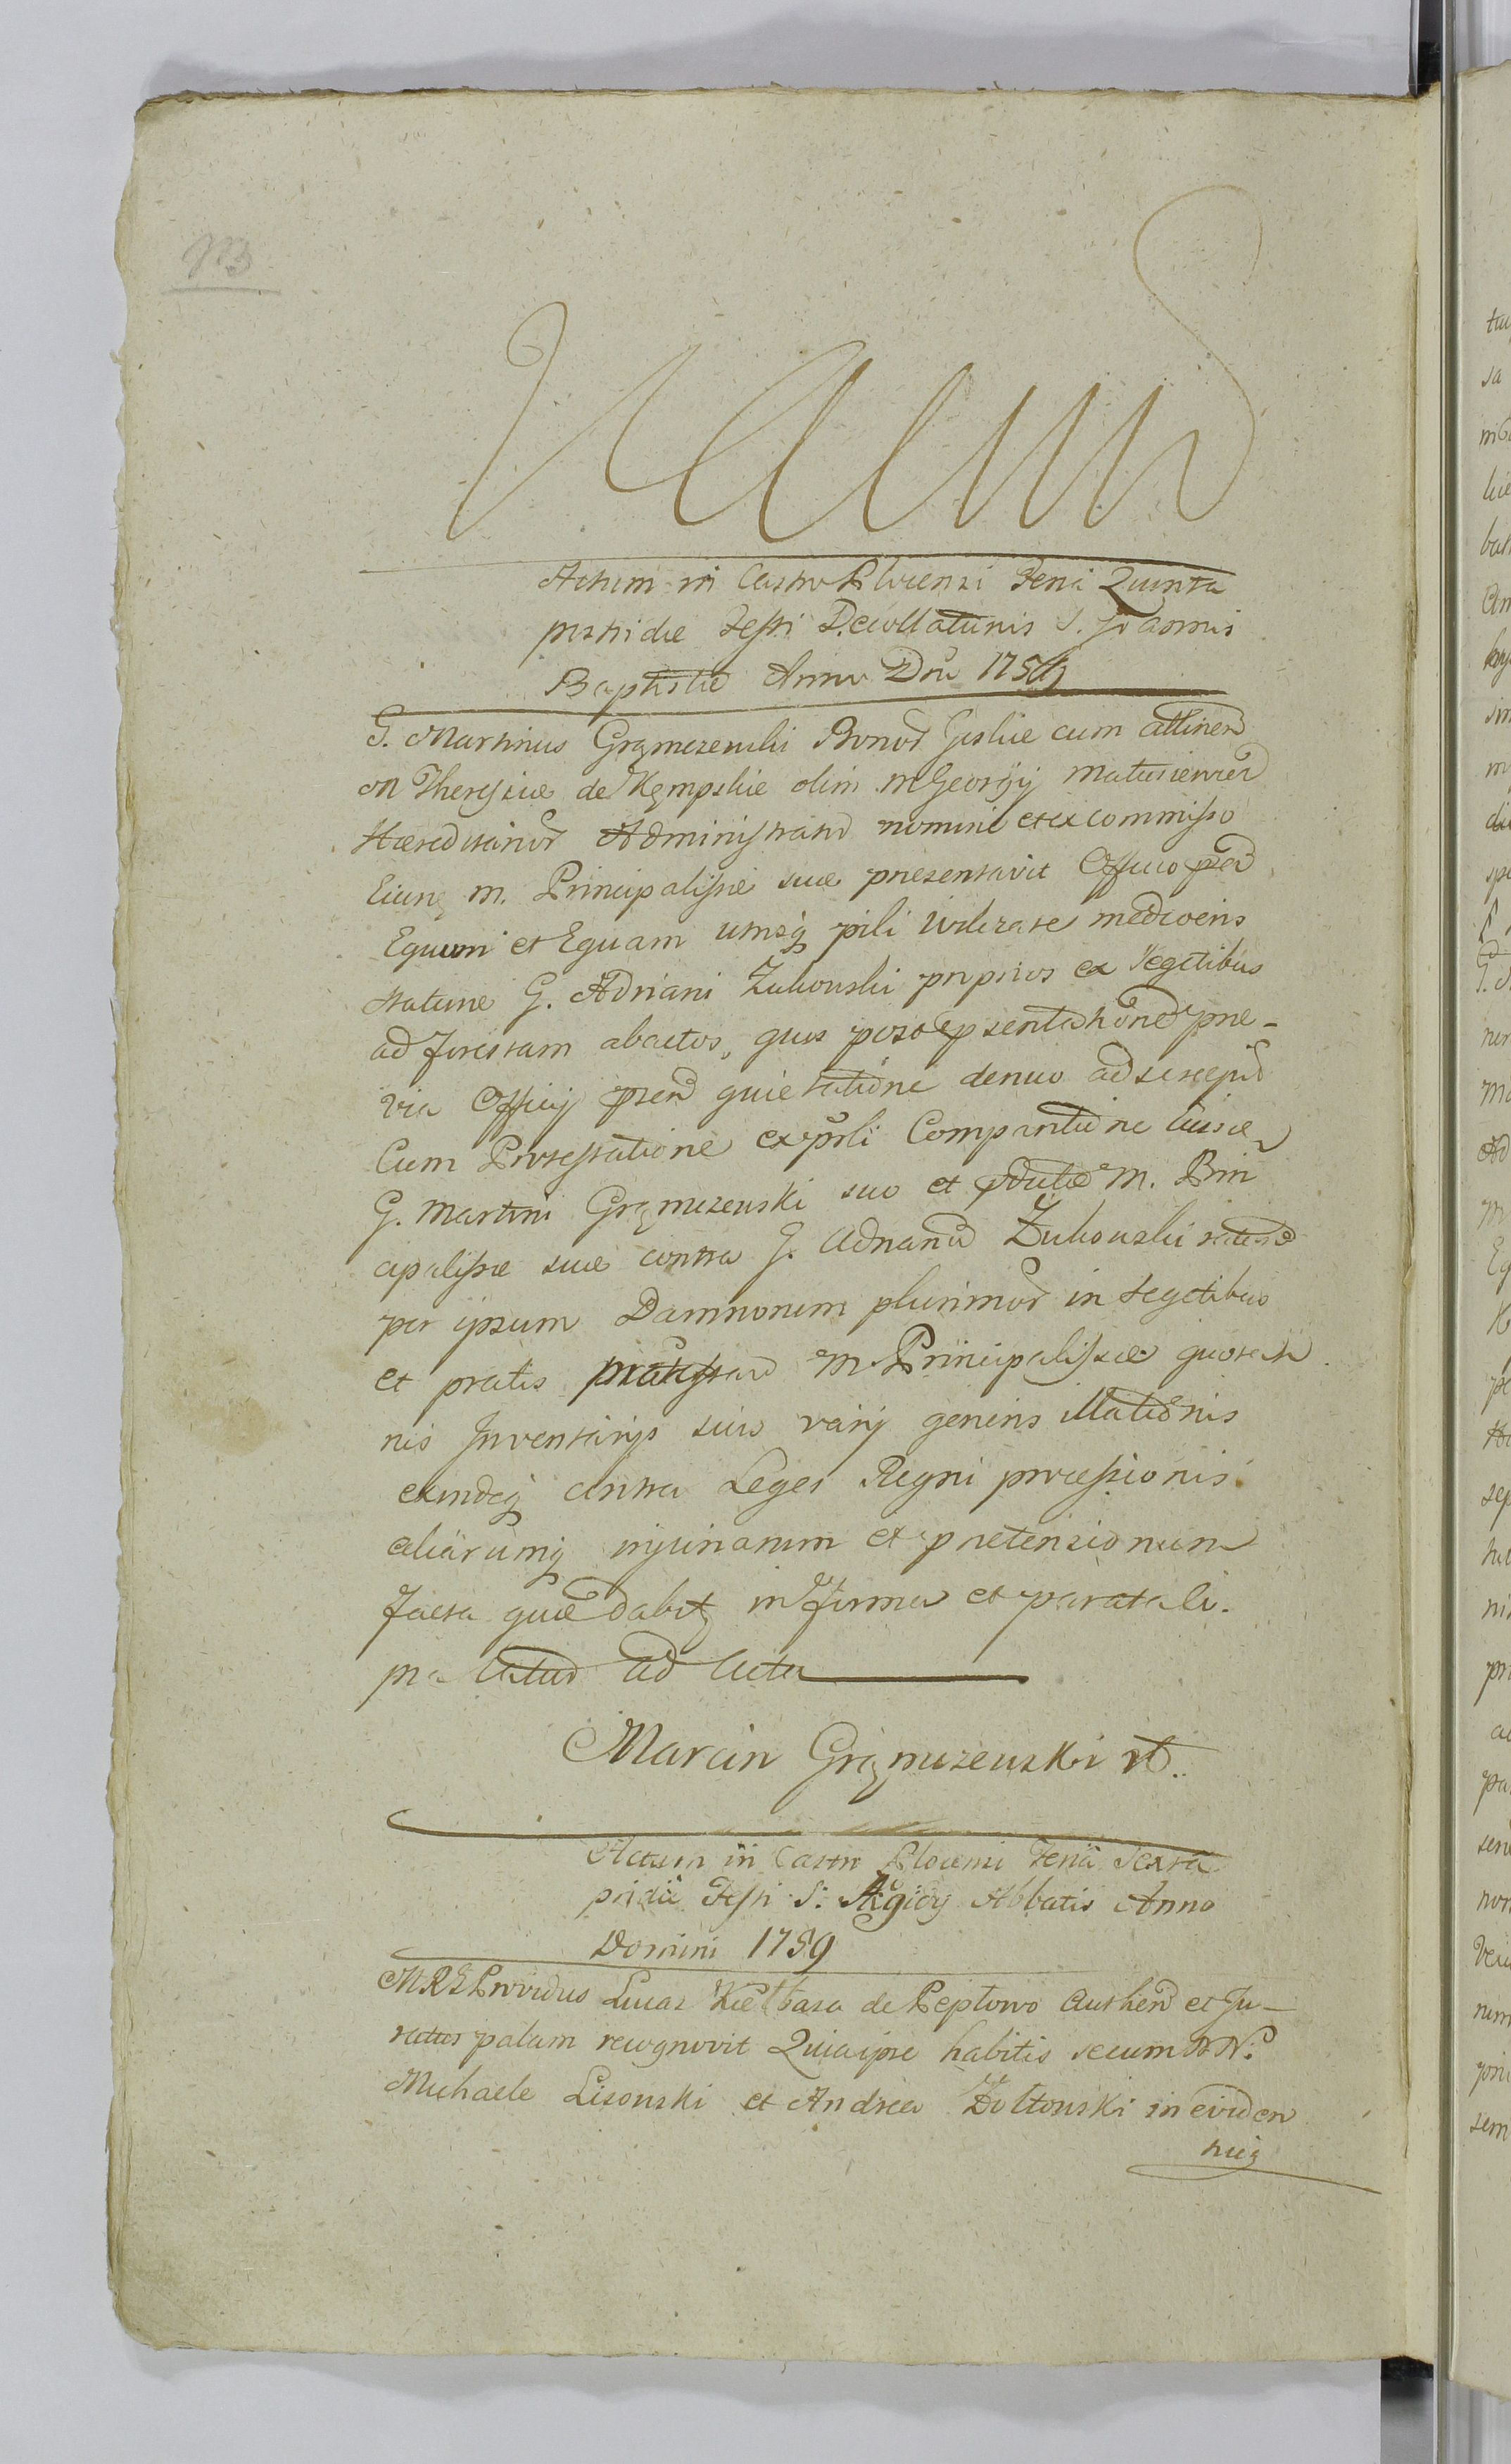 Actum in Castro Plocensi Feria Quinta
postridie Festi Decollationis S. Joannis
Baptistae Anno Dni 1759
G. Martinus Grązmczewski Bonor Goslie cum attinen
M Theresiae de Kępskie olim M Georgij Matusiewicz
Haereditarior Administrator nomine et ex commisso
Eiusq M. Principalissae suae presentavit Officio psen
Equum et Equam utriusq pili mediocris
staturae G. Adriani Żukowski proprios ex segetibus
ad forestam abactos, quos post psentationem pre-
via Officij psen quietatione denuo ad se recepit
Cum Protestatione ex psli Comparitione Eiusdem
G. Martini Grązmczewski suo et M. Prin
cipalissae suae contra G. Adrianum Żukowski ratione
per ipsum Damnorum plurimor in segetibus
et pratis M. Principalissae
nis Inventarijs suis varij generis illationis
exindeq contra Leges Regni processionis
aliarumq injuriarum et pretensionum
facta quae dabitq in forma et parata li.
ad Acta
Marcin Grązmczewski
Actum in Castro Plocensi Feria Sexta
pridie Festi S: Ægidij Abbatis Anno
Domini 1759
MRG Providus Lucas Kiełbasa de Peptowo Authen et Ju-
ratus palam recognovit Quia ipse habitis secum NN.
Michaele Lisowski et Andrea Żołtowski in eviden